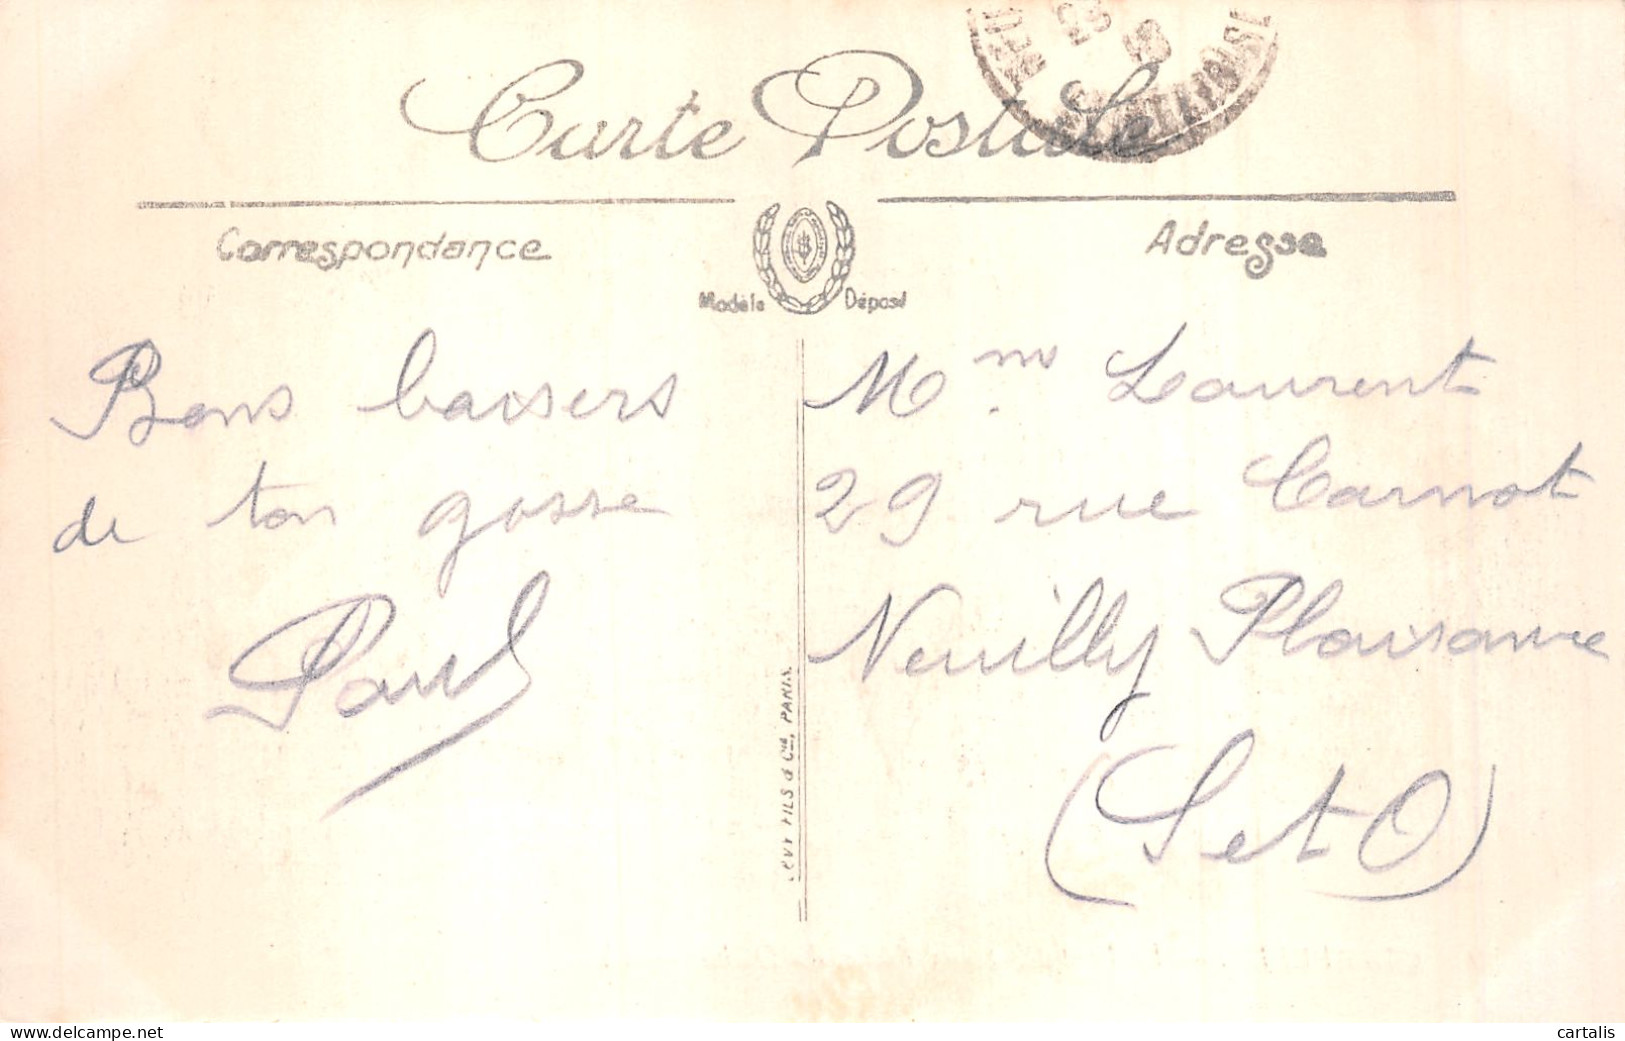 Carte Postale
Correspondance
Adresse
Modèle Déposé
Bons baisers
de ton gosse
Paul
LEVY FILS & Cie, PARIS
Mme Laurent
29 rue Carnot
Neuilly Plaisance
(S et O)
www.delcampe.net
cartalis